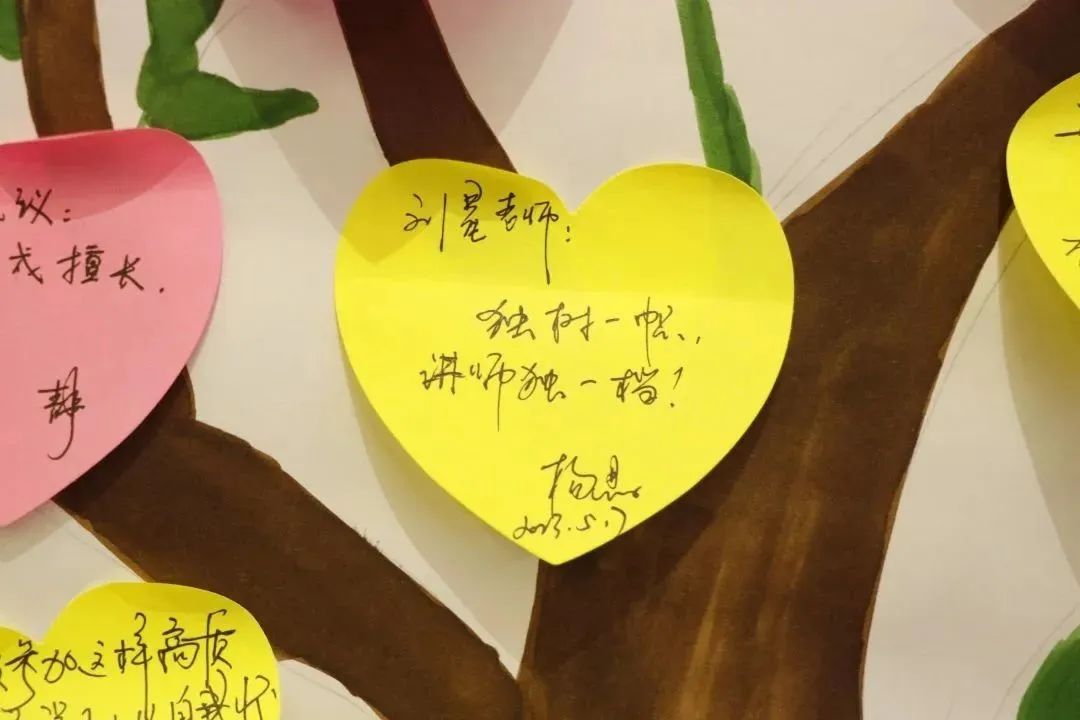 议：
戈擅长．
静
刘星老师：
独树一帜、
讲师独一档！
杨思
2023.5.7
参加这样高质